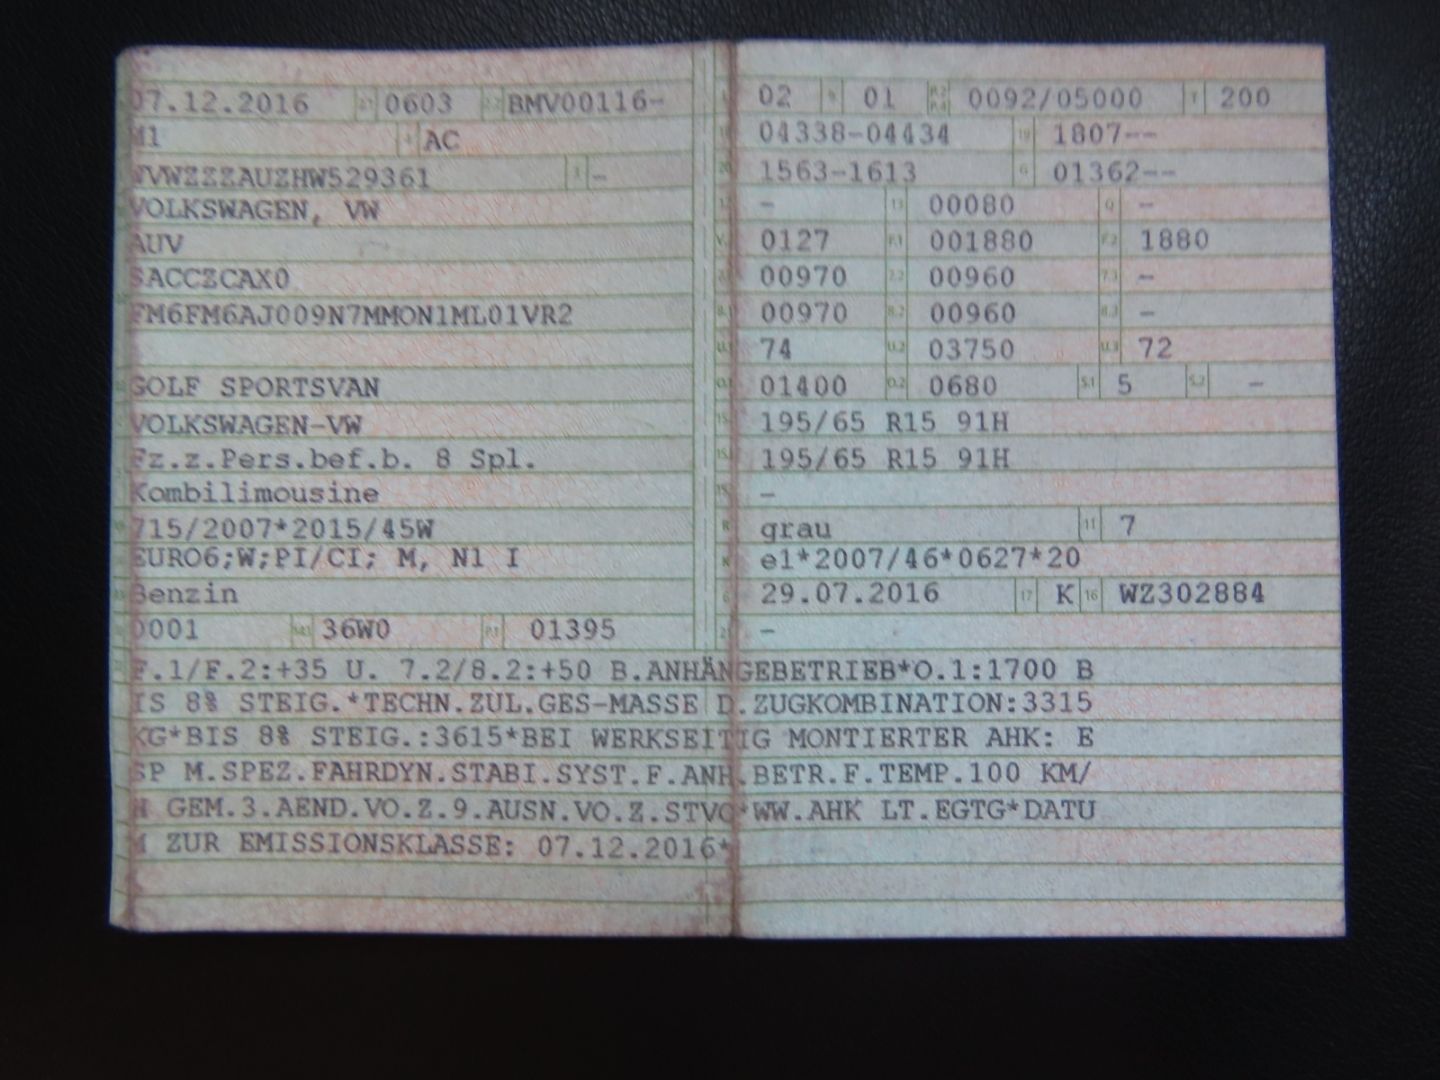 07.12.2016 2.1 0603 2.2 BMV00116-
M1 4 AC
WVWZZZAUZHW529361 3 -
VOLKSWAGEN, VW
AUV
SACCZCAX0
FM6FM6AJ009N7MMON1ML01VR2
GOLF SPORTSVAN
VOLKSWAGEN-VW
Fz.z.Pers.bef.b. 8 Spl.
Kombilimousine
715/2007*2015/45W
EURO6;W;PI/CI; M, N1 I
Benzin
0001 14.1 36W0 P.1 01395
02 9 01 P.2 P.4 0092/05000 T 200
18 04338-04434 19 1807--
20 1563-1613 G 01362--
12 - 13 00080 Q -
V.7 0127 F.1 001880 F.2 1880
7.1 00970 7.2 00960 7.3 -
8.1 00970 8.2 00960 8.3 -
U.1 74 U.2 03750 U.3 72
O.1 01400 O.2 0680 S.1 5 S.2 -
15.1 195/65 R15 91H
15.2 195/65 R15 91H
15.3 -
R grau 11 7
K e1*2007/46*0627*20
6 29.07.2016 17 K 16 WZ302884
21 -
F.1/F.2:+35 U. 7.2/8.2:+50 B.ANHÄNGEBETRIEB*O.1:1700 B
IS 8% STEIG.*TECHN.ZUL.GES-MASSE D.ZUGKOMBINATION:3315
KG*BIS 8% STEIG.:3615*BEI WERKSEITIG MONTIERTER AHK: E
SP M.SPEZ.FAHRDYN.STABI.SYST.F.ANH.BETR.F.TEMP.100 KM/
H GEM.3.AEND.VO.Z.9.AUSN.VO.Z.STVO*WW.AHK LT.EGTG*DATU
M ZUR EMISSIONSKLASSE: 07.12.2016*